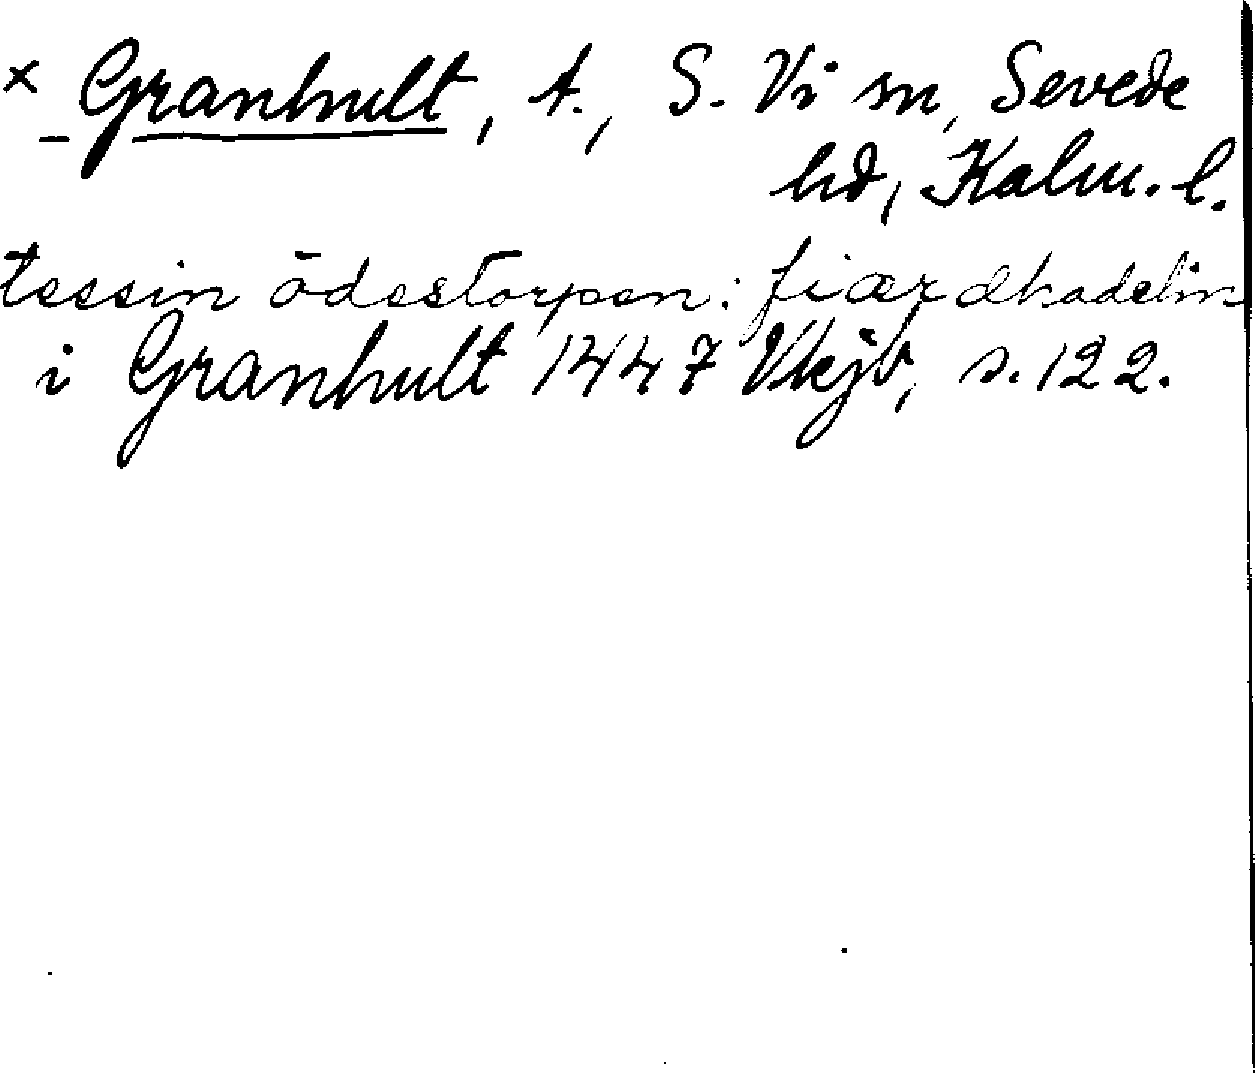 × Granhult, t., S. Vi sn, Sevede
hd, Kalm. l.
tessin ödestorpen: fiærdhadelin
i Granhult 1447 Vkjb, s. 122.